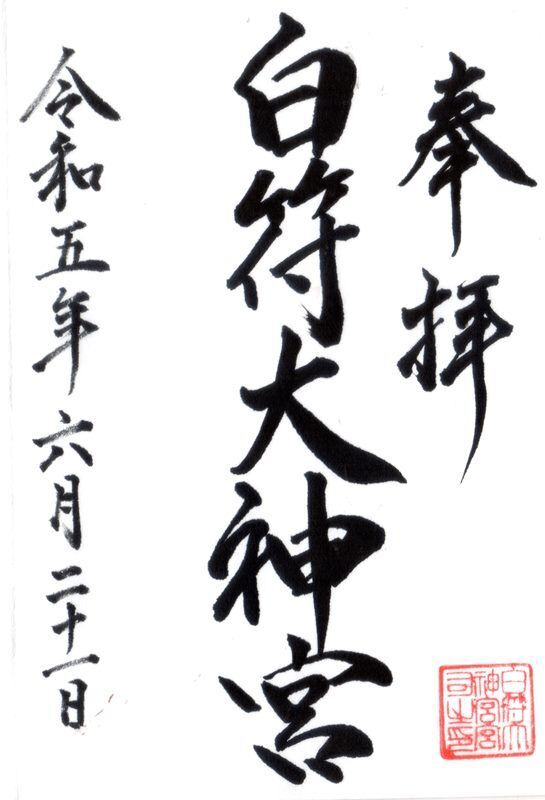 奉拝
白符大神宮
令和五年六月二十一日
白符大
神宮宮
司之印